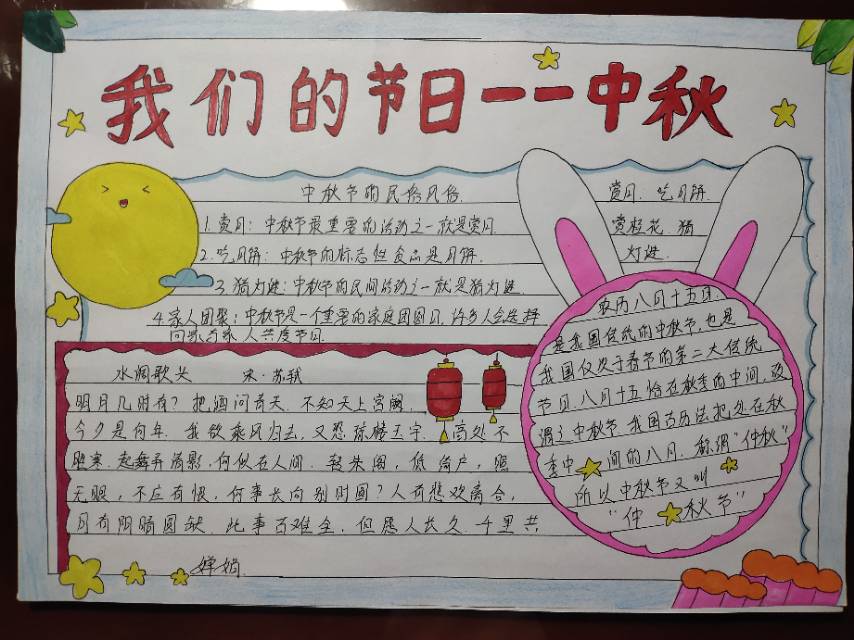 我们的节日——中秋
中秋节的民俗风俗.
1.赏月：中秋节最重要的活动之一就是赏月.
2.吃月饼：中秋节的标志性食品是月饼.
3.猜灯谜：中秋节的民间活动之一就是猜灯谜.
4.家人团聚：中秋节是一个重要的家庭团圆日，许多人会选择
回家与家人共度节日.
赏月.吃月饼.
赏桂花 猜
灯谜.
水调歌头 宋·苏轼
明月几时有？把酒问青天.不知天上宫阙，
今夕是何年.我欲乘风归去，又恐琼楼玉宇.高处不
胜寒.起舞弄清影，何似在人间.转朱阁，低绮户，照
无眠，不应有恨，何事长向别时圆？人有悲欢离合，
月有阴晴圆缺.此事古难全.但愿人长久 千里共
婵娟.
农历八月十五日.
是我国传统的中秋节，也是
我国仅次于春节的第二大传统
节日.八月十五恰在秋季的中间，故
谓之中秋节.我国古历法把处在秋
季中间的八月.称谓“仲秋”
所以中秋节又叫
“仲秋节”